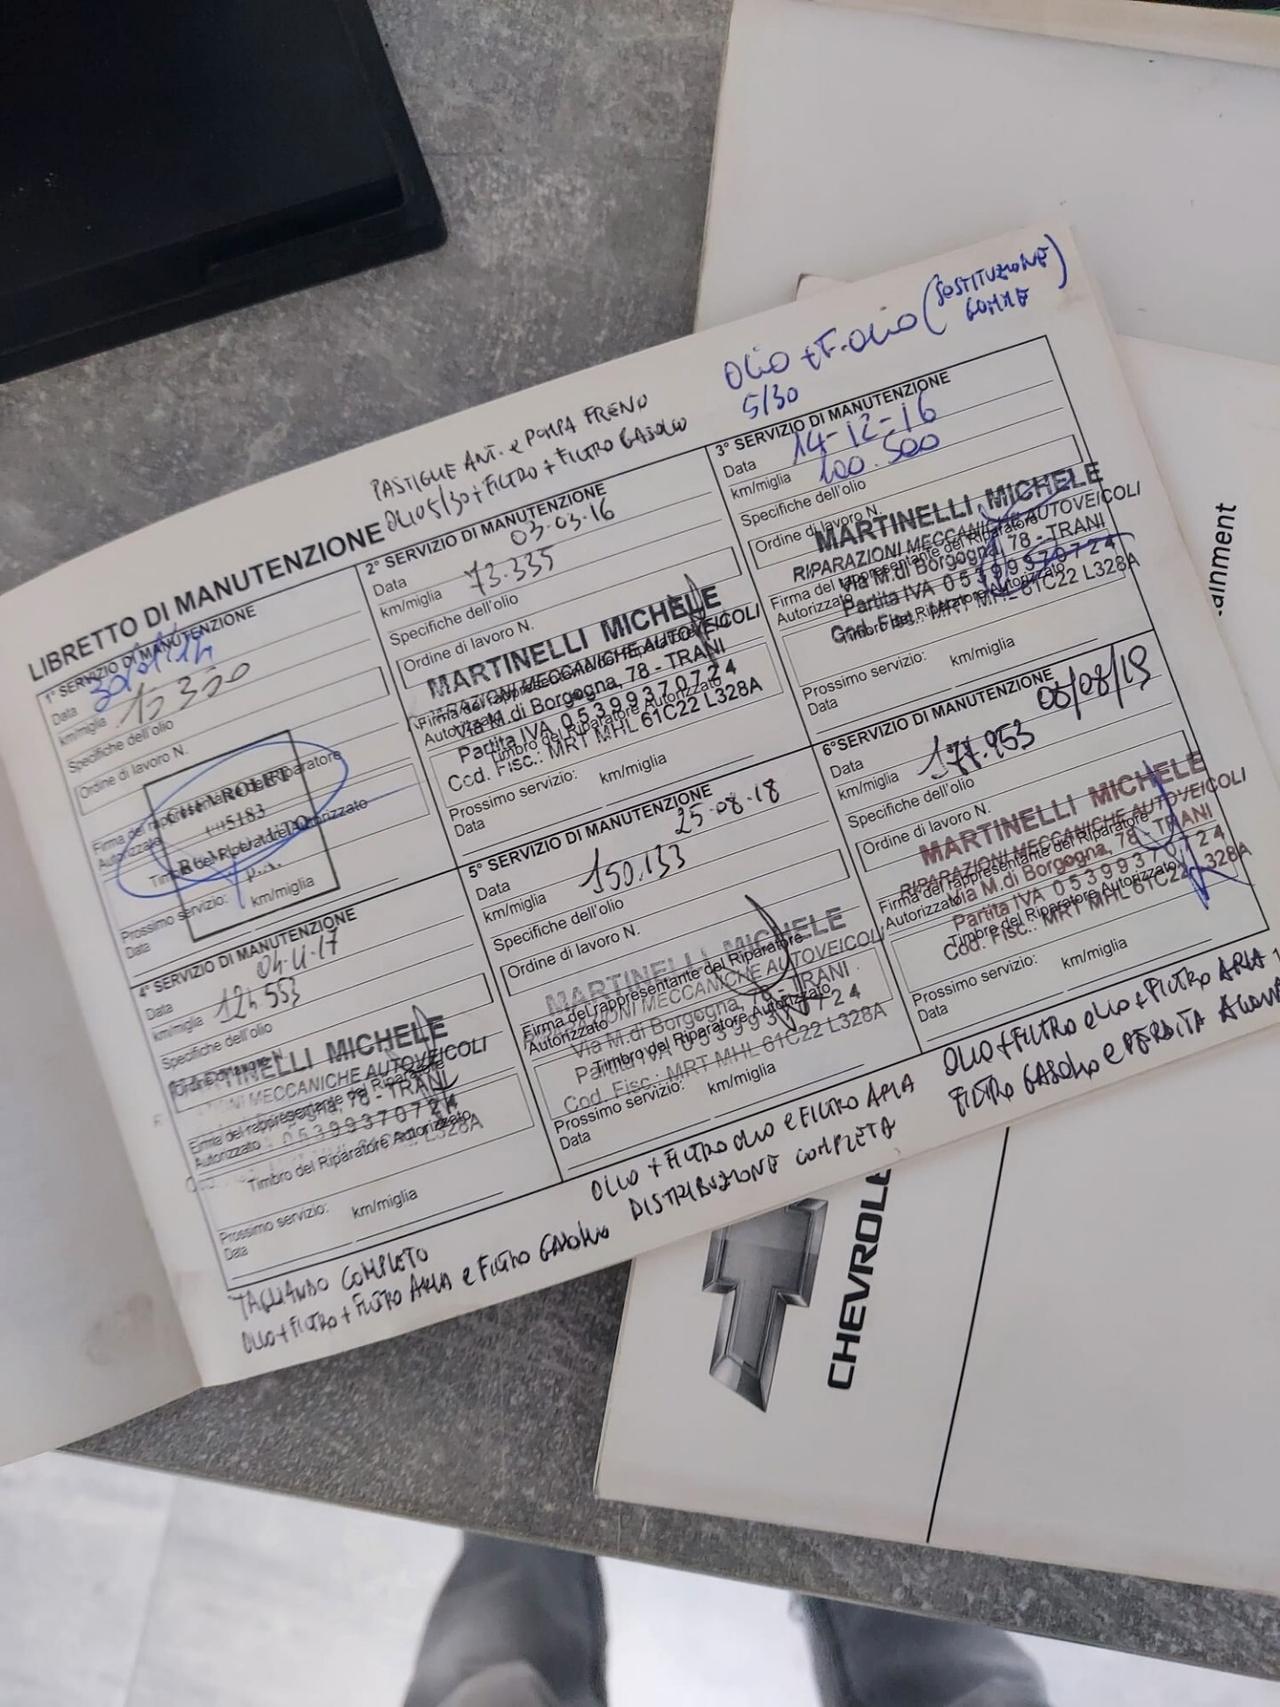 OLIO + F. OLIO (SOSTITUZIONE
GOMME)
5/30
PASTIGLIE ANT. e POMPA FRENO
OLIO 5/30 + FILTRO + FILTRO GASOLIO
LIBRETTO DI MANUTENZIONE
1° SERVIZIO DI MANUTENZIONE
Data
km/miglia
Specifiche dell'olio
Ordine di lavoro N.
Firma del rappresentante del Riparatore
Autorizzato
Timbro del Riparatore Autorizzato
CHEVROLET
Prossimo servizio: km/miglia
Data
2° SERVIZIO DI MANUTENZIONE
Data 03-03-16
km/miglia 73.335
Specifiche dell'olio
Ordine di lavoro N.
MARTINELLI MICHELE
RIPARAZIONI MECCANICHE AUTOVEICOLI
Firma del rappresentante del Riparatore
Autorizzato
Via M.di Borgogna, 78 - TRANI
Partita IVA 05399370724
Timbro del Riparatore Autorizzato
Cod. Fisc.: MRT MHL 61C22 L328A
Prossimo servizio: km/miglia
Data
3° SERVIZIO DI MANUTENZIONE
Data 14-12-16
km/miglia 100.500
Specifiche dell'olio
Ordine di lavoro N.
MARTINELLI MICHELE
RIPARAZIONI MECCANICHE AUTOVEICOLI
Firma del rappresentante del Riparatore
Autorizzato
Via M.di Borgogna, 78 - TRANI
Partita IVA 05399370724
Timbro del Riparatore Autorizzato
Cod. Fisc.: MRT MHL 61C22 L328A
Prossimo servizio: km/miglia
Data
4° SERVIZIO DI MANUTENZIONE
Data
km/miglia 124.553
Specifiche dell'olio
MARTINELLI MICHELE
MECCANICHE AUTOVEICOLI
Firma del rappresentante del Riparatore
Autorizzato
78 - TRANI
05399370724
Timbro del Riparatore Autorizzato
L328A
Prossimo servizio: km/miglia
Data
TAGLIANDO COMPLETO
OLIO + FILTRO + FILTRO ARIA e FILTRO GASOLIO
5° SERVIZIO DI MANUTENZIONE
Data 25-08-18
km/miglia 150.133
Specifiche dell'olio
Ordine di lavoro N.
MARTINELLI MICHELE
RIPARAZIONI MECCANICHE AUTOVEICOLI
Firma del rappresentante del Riparatore
Autorizzato
Via M.di Borgogna, 78 - TRANI
Partita IVA 05399370724
Timbro del Riparatore Autorizzato
Cod. Fisc.: MRT MHL 61C22 L328A
Prossimo servizio: km/miglia
Data
OLIO + FILTRO OLIO e FILTRO ARIA
DISTRIBUZIONE COMPLETA
6° SERVIZIO DI MANUTENZIONE
Data
km/miglia
Specifiche dell'olio
Ordine di lavoro N.
MARTINELLI MICHELE
RIPARAZIONI MECCANICHE AUTOVEICOLI
Firma del rappresentante del Riparatore
Autorizzato
Via M.di Borgogna, 78 - TRANI
Partita IVA 05399370724
Timbro del Riparatore Autorizzato
Cod. Fisc.: MRT MHL 61C22 L328A
Prossimo servizio: km/miglia
Data
OLIO + FILTRO OLIO + FILTRO ARIA
FILTRO GASOLIO e PERDITA
ainment
CHEVROLE